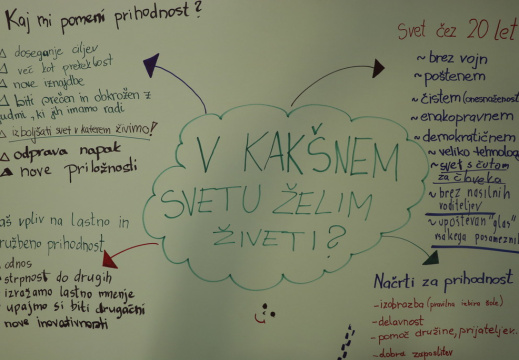 Kaj mi pomeni prihodnost?
doseganje ciljev
več kot preteklost
nove iznajdbe
biti srečen in obkrožen z
ljudmi, ki jih imamo radi
izboljšati svet v katerem živimo!
odprava napak
nove priložnosti
Svet čez 20 let
~ brez vojn
~ poštenem
~ čistem (onesnaženost
~ enakopravnem
~ demokratičnem
~ veliko tehnolog
~ svet s čutom
za človeka
~ brez nasilnih
voditeljev
~ upoštevan "glas"
vsakega posameznik
V KAKŠNEM
SVETU ŽELIM
ŽIVETI?
aš vpliv na lastno in
družbeno prihodnost
odnos
strpnost do drugih
izražamo lastno mnenje
upajmo si biti drugačni
nove inovativnosti
Načrti za prihodnost
- izobrazba (pravilna izbira šole)
- delavnost
- pomoč družine, prijateljev
- dobra zaposlitev